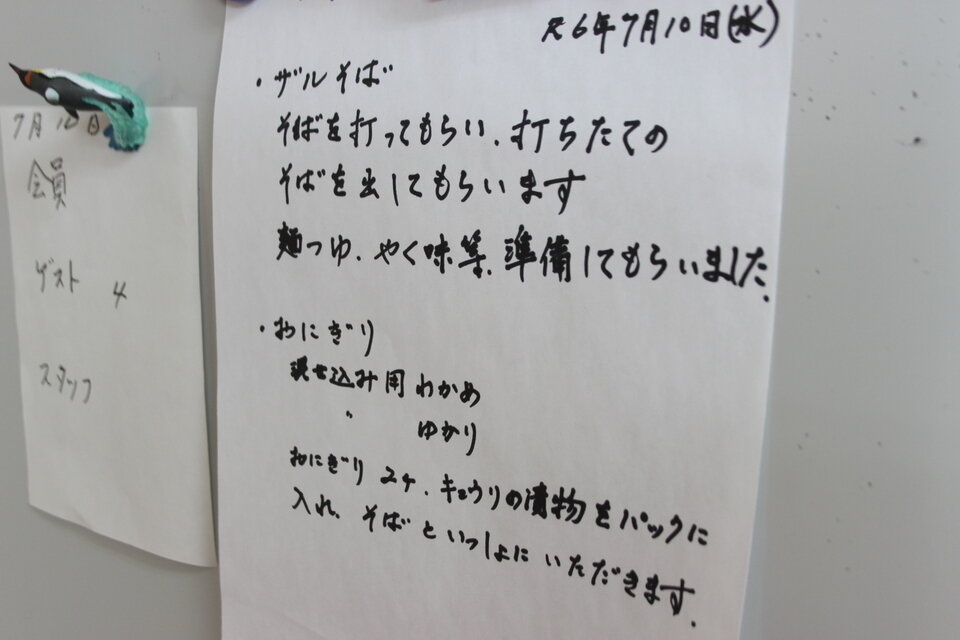 R6年7月10日(水)
・ザルそば
そばを打ってもらい、打ちたての
そばを出してもらいます
麺つゆ、やく味等、準備してもらいました。
・おにぎり
混ぜ込み用 わかめ
〃 ゆかり
おにぎり 2ケ、キュウリの漬物をパックに
入れ、そばといっしょにいただきます。
7月10日
会員
ゲスト 4
スタッフ